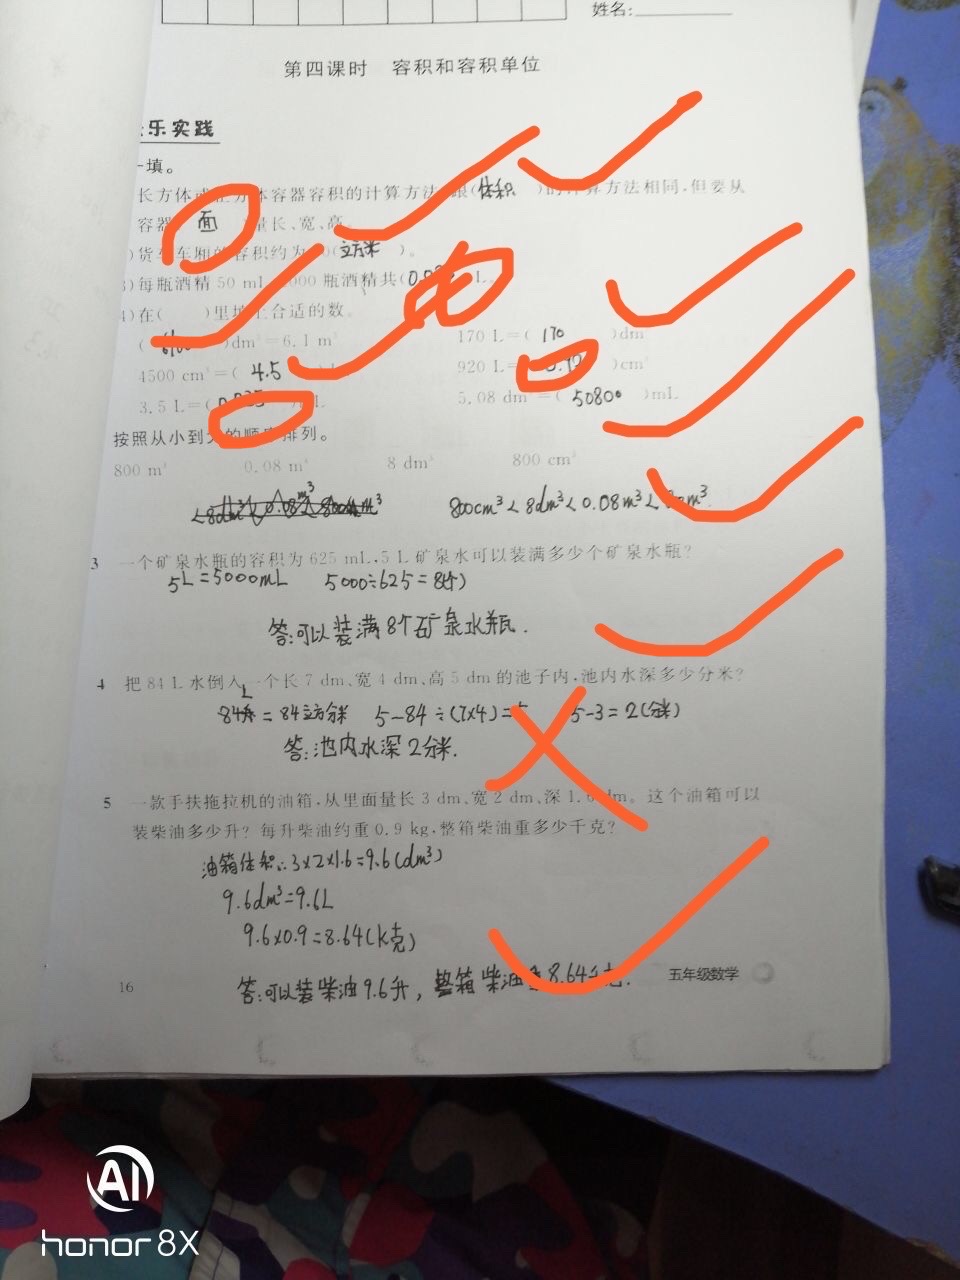 姓名:
第四课时 容积和容积单位
乐实践
填。
长方体或 体容器容积的计算方法 跟(体积 )的计算方法相同,但要从
容器 面 量长、宽、高。
)货车车厢的容积约为 (立方米 )。
)每瓶酒精 50 mL, 000 瓶酒精共( L。
4)在( )里填上合适的数。
( )dm³=6.1 m³ 170 L=( 170 )dm³
4500 cm³=( 4.5 920 L= )cm³
3.5 L=( 5.08 dm³=( 5080 )mL
按照从小到大的顺序排列。
800 m³ 0.08 m³ 8 dm³ 800 cm³
800cm³<8dm³<0.08m³< m³
3 一个矿泉水瓶的容积为 625 mL,5 L 矿泉水可以装满多少个矿泉水瓶?
5L=5000mL 5000÷625=8(个)
答:可以装满8个矿泉水瓶.
4 把 84 L 水倒入一个长 7 dm、宽 4 dm、高 5 dm 的池子内,池内水深多少分米?
84L=84立方分米 5-84÷(7×4)= 5-3=2(分米)
答:池内水深2分米.
5 一款手扶拖拉机的油箱,从里面量长 3 dm、宽 2 dm、深 1.6 dm。这个油箱可以
装柴油多少升?每升柴油约重 0.9 kg,整箱柴油重多少千克?
油箱体积:3×2×1.6=9.6(dm³)
9.6dm³=9.6L
9.6×0.9=8.64(k克)
答:可以装柴油9.6升,整箱柴油重8.64千克.
16 五年级数学
AI
honor 8X